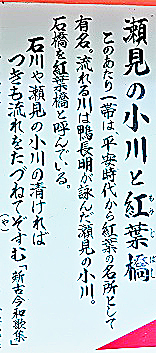 瀬見の小川と紅葉橋
もみじばし
このあたり一帯は、平安時代から紅葉の名所として
有名。流れる川は鴨長明が詠んだ瀬見の小川。
石橋を紅葉橋と呼んでいる。
石川や瀬見の小川の清ければ
つきも流れをたづねてぞすむ「新古今和歌集」
(や)